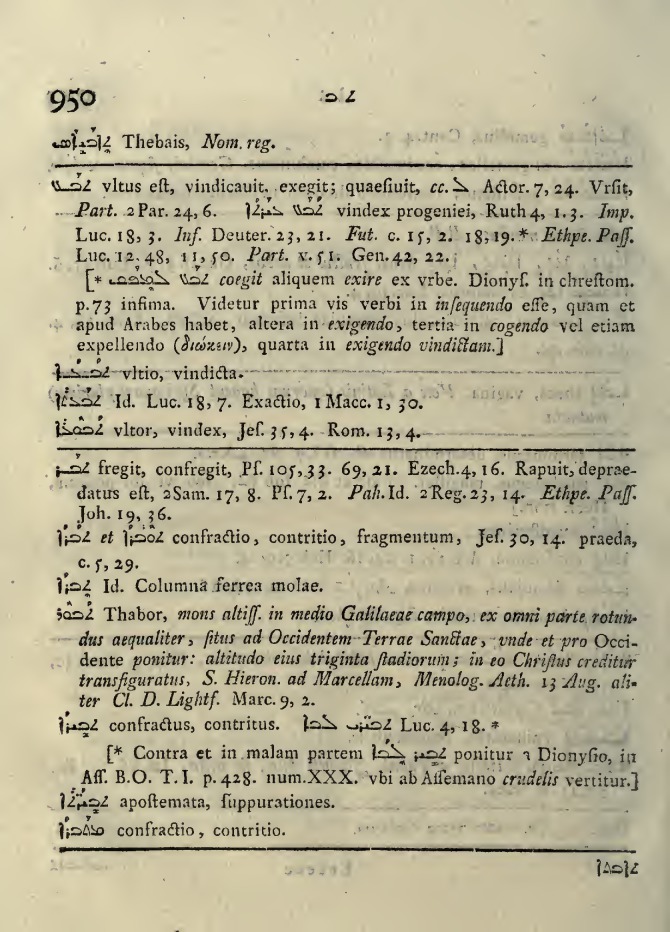 950 ܬܒ
ܬܐܒܐܝܣ Thebais, Nom. reg.
ܬܒܥ vltus eſt, vindicauit, exegit; quaeſiuit, cc. ܠ Actor. 7, 24. Vrſit,
Part. 2 Par. 24, 6. vindex progeniei, Ruth 4, 1. 3. Imp.
Luc. 18, 3. Inf. Deuter. 23, 21. Fut. c. 15, 2. 18, 19. * Ethpe. Paſſ.
Luc. 12. 48, 11, 50. Part. v. 51. Gen. 42, 22.
[* coegit aliquem exire ex vrbe. Dionyſ. in chreſtom.
p. 73 infima. Videtur prima vis verbi in inſequendo eſſe, quam et
apud Arabes habet, altera in exigendo, tertia in cogendo vel etiam
expellendo (διώκειν), quarta in exigendo vindictam.]
ܬܒܥܐ vltio, vindicta.
ܬܒܥܬܐ Id. Luc. 18, 7. Exactio, 1 Macc. 1, 30.
ܬܒܘܥܐ vltor, vindex, Jeſ. 35, 4. Rom. 13, 4.
ܬܒܪ fregit, confregit, Pſ. 105, 33. 69, 21. Ezech. 4, 16. Rapuit, deprae-
datus eſt, 2 Sam. 17, 8. Pſ. 7, 2. Pah. Id. 2 Reg. 23, 14. Ethpe. Paſſ.
Joh. 19, 36.
ܬܒܪܐ et ܬܘܒܪܐ confractio, contritio, fragmentum, Jeſ. 30, 14. praeda,
c. 5, 29.
ܬܒܪܐ Id. Columna ferrea molae.
ܬܒܘܪ Thabor, mons altiſſ. in medio Galilaeae campo, ex omni parte rotun-
dus aequaliter, ſitus ad Occidentem Terrae Sanctae, vnde et pro Occi-
dente ponitur: altitudo eius triginta ſtadiorum; in eo Chriſtus creditur
transfiguratus, S. Hieron. ad Marcellam, Menolog. Aeth. 13 Aug. ali-
ter Cl. D. Lightf. Marc. 9, 2.
ܬܒܝܪܐ confractus, contritus. ܬܒܝܪܝ ܠܒܐ Luc. 4, 18. *
[* Contra et in malam partem ܬܒܝܪ ܠܒܐ ponitur a Dionyſio, in
Aſſ. B.O. T. I. p. 428. num. XXX. vbi ab Aſſemano crudelis vertitur.]
ܬܒܝܪܬܐ apoſtemata, ſuppurationes.
confractio, contritio.